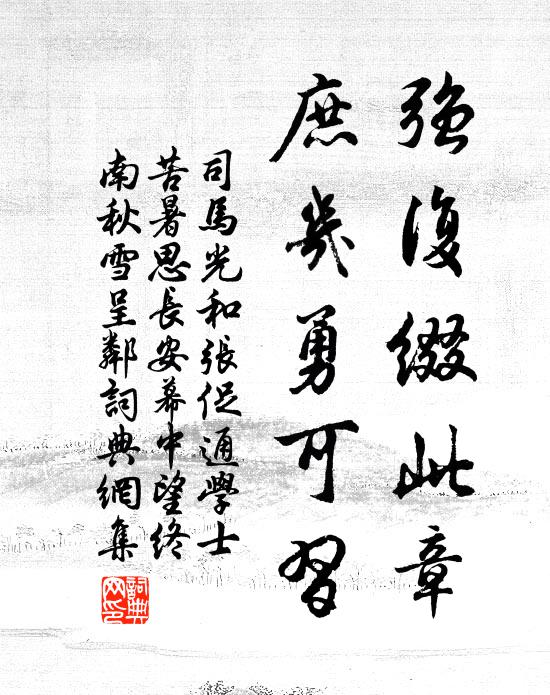 強復綴此章
庶幾勇可習
司馬光和張促通學士
苦暑思長安幕中望終
南秋雪呈鄰詞典網集
詞典
网印